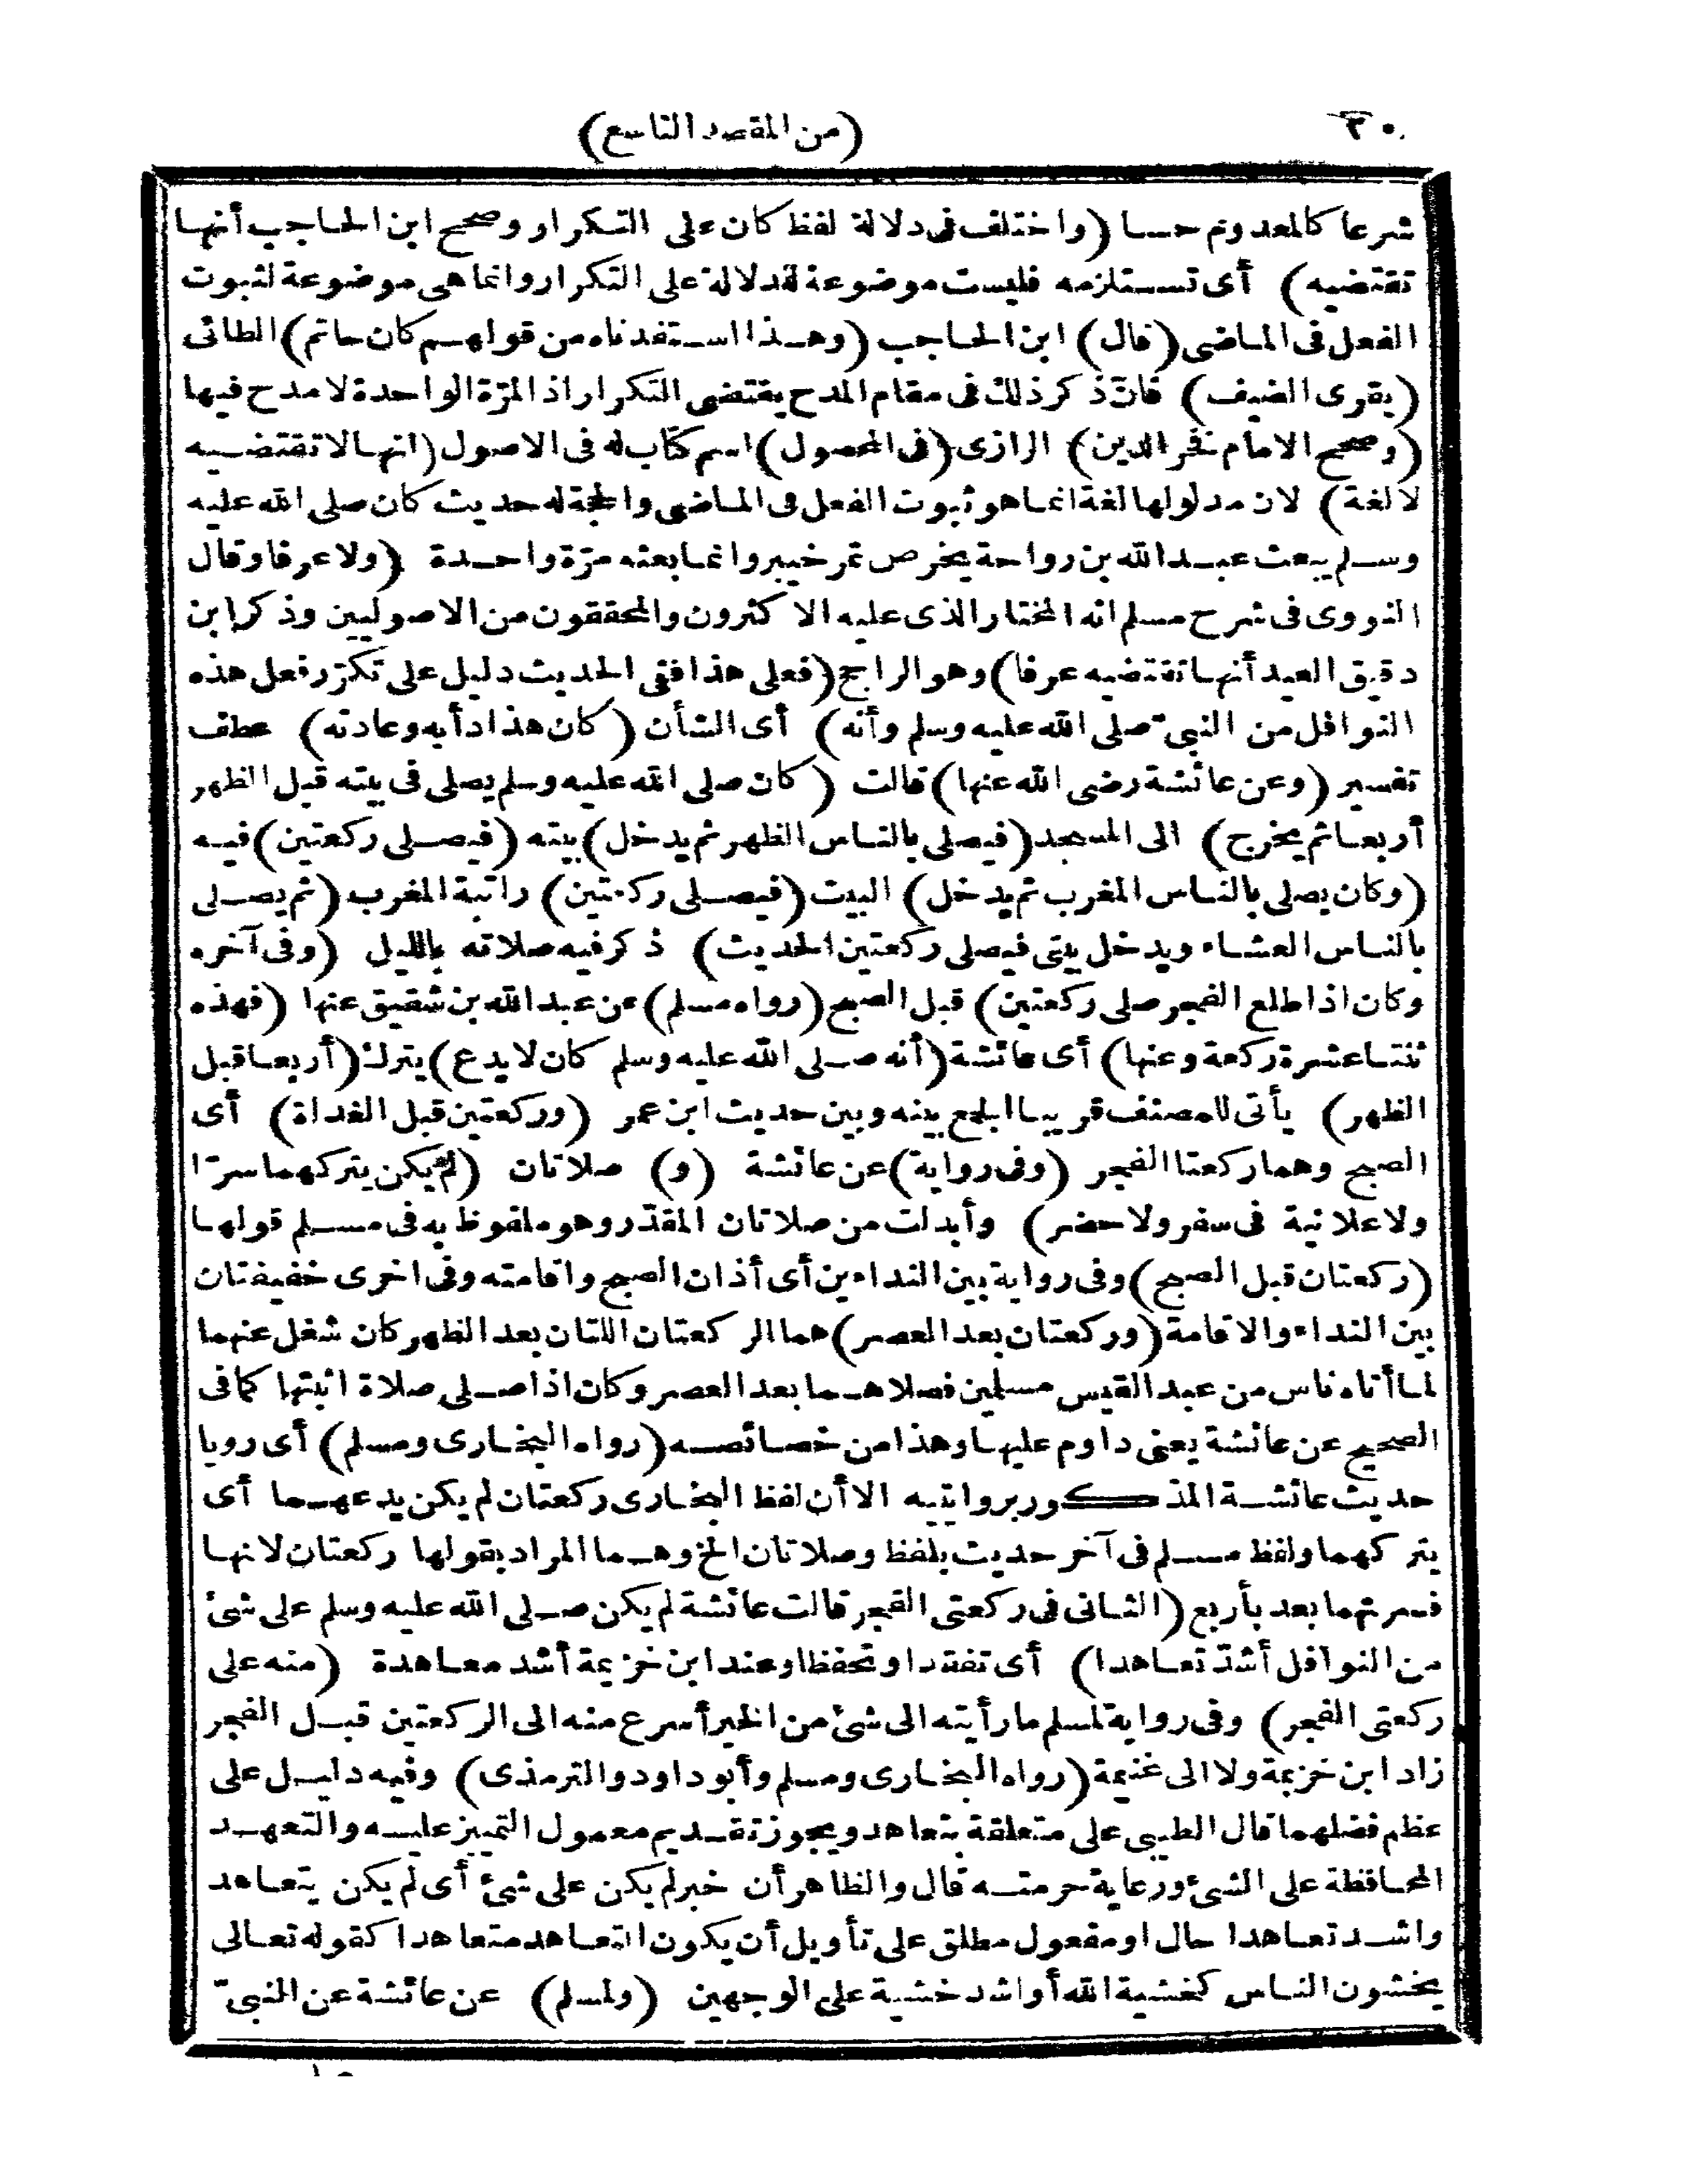 ٣٠ (من المقصد التاسع)
شرعا كالمعدوم حسا (واختلف فى دلالة لفظ كان على التكرار وصحح ابن الحاجب أنها
تقتضيه) أى تستلزمه فليست موضوعة للدلالة على التكرار وانما هى موضوعة لثبوت
الفعل فى الماضى (قال) ابن الحاجب (وهذا استفدناه من قولهم كان حاتم) الطائى
(يقرى الضيف) فانّ ذكر ذلك فى مقام المدح يقتضى التكرار اذ المرّة الواحدة لا مدح فيها
(وصحح الامام فخر الدين) الرازى (فى المحصول) اسم كتاب له فى الاصول (انها لا تقتضيه
لا لغة) لان مدلولها لغة انما هو ثبوت الفعل فى الماضى والحجة له حديث كان صلى الله عليه
وسلم يبعث عبد الله بن رواحة يخرص تمر خيبر وانما بعثه مرّة واحدة (ولا عرفا وقال
النووى فى شرح مسلم انه المختار الذى عليه الاكثرون والمحققون من الاصوليين وذكر ابن
دقيق العيد أنها تقتضيه عرفا) وهو الراجح (فعلى هذا ففى الحديث دليل على تكرّر فعل هذه
النوافل من النبىّ صلى الله عليه وسلم وأنه) أى الشأن (كان هذا دأبه وعادته) عطف
تفسير (وعن عائشة رضى الله عنها) قالت (كان صلى الله عليه وسلم يصلى فى بيته قبل الظهر
أربعا ثم يخرج) الى المسجد (فيصلى بالناس الظهر ثم يدخل) بيته (فيصلى ركعتين) فيه
(وكان يصلى بالناس المغرب ثم يدخل) البيت (فيصلى ركعتين) راتبة المغرب (ثم يصلى
بالناس العشاء ويدخل بيتى فيصلى ركعتين الحديث) ذكر فيه صلاته بالليل (وفى آخره
وكان اذا طلع الفجر صلى ركعتين) قبل الصبح (رواه مسلم) عن عبد الله بن شقيق عنها (فهذه
ثنتا عشرة ركعة وعنها) أى عائشة (أنه صلى الله عليه وسلم كان لا يدع) يترك (أربعا قبل
الظهر) يأتى للمصنف قريبا الجمع بينه وبين حديث ابن عمر (وركعتين قبل الغداة) أى
الصبح وهما ركعتا الفجر (وفى رواية) عن عائشة (و) صلاتان (لم يكن يتركهما سرّا
ولا علانية فى سفر ولا حضر) وأبدلت من صلاتان المقدّر وهو ملفوظ به فى مسلم قولها
(ركعتان قبل الصبح) وفى رواية بين النداءين أى أذان الصبح واقامته وفى اخرى خفيفتان
بين النداء والاقامة (وركعتان بعد العصر) هما الركعتان اللتان بعد الظهر كان شغل عنهما
لما أتاه ناس من عبد القيس مسلمين فصلاهما بعد العصر وكان اذا صلى صلاة اثبتها كما فى
الصحيح عن عائشة يعنى داوم عليها وهذا من خصائصه (رواه البخارى ومسلم) أى رويا
حديث عائشة المذكور بروايتيه الا أن لفظ البخارى ركعتان لم يكن يدعهما أى
يتركهما ولفظ مسلم فى آخر حديث بلفظ وصلاتان الخ وهما المراد بقولها ركعتان لانها
فسرتهما بعد بأربع (الثانى فى ركعتى الفجر قالت عائشة لم يكن صلى الله عليه وسلم على شئ
من النوافل أشدّ تعاهدا) أى تفقدا وتحفظا وعند ابن خزيمة أشد معاهدة (منه على
ركعتى الفجر) وفى رواية لمسلم ما رأيته الى شئ من الخير أسرع منه الى الركعتين قبل الفجر
زاد ابن خزيمة ولا الى غنيمة (رواه البخارى ومسلم وأبو داود والترمذى) وفيه دليل على
عظم فضلهما قال الطيبى على متعلقة بتعاهد ويجوز تقديم معمول التمييز عليه والتعهد
المحافظة على الشئ ورعاية حرمته قال والظاهر أن خبر لم يكن على شئ أى لم يكن يتعاهد
واشد تعاهدا حال او مفعول مطلق على تأويل أن يكون التعاهد متعاهدا كقوله تعالى
يخشون الناس كخشية الله أو اشد خشية على الوجهين (ولمسلم) عن عائشة عن النبىّ